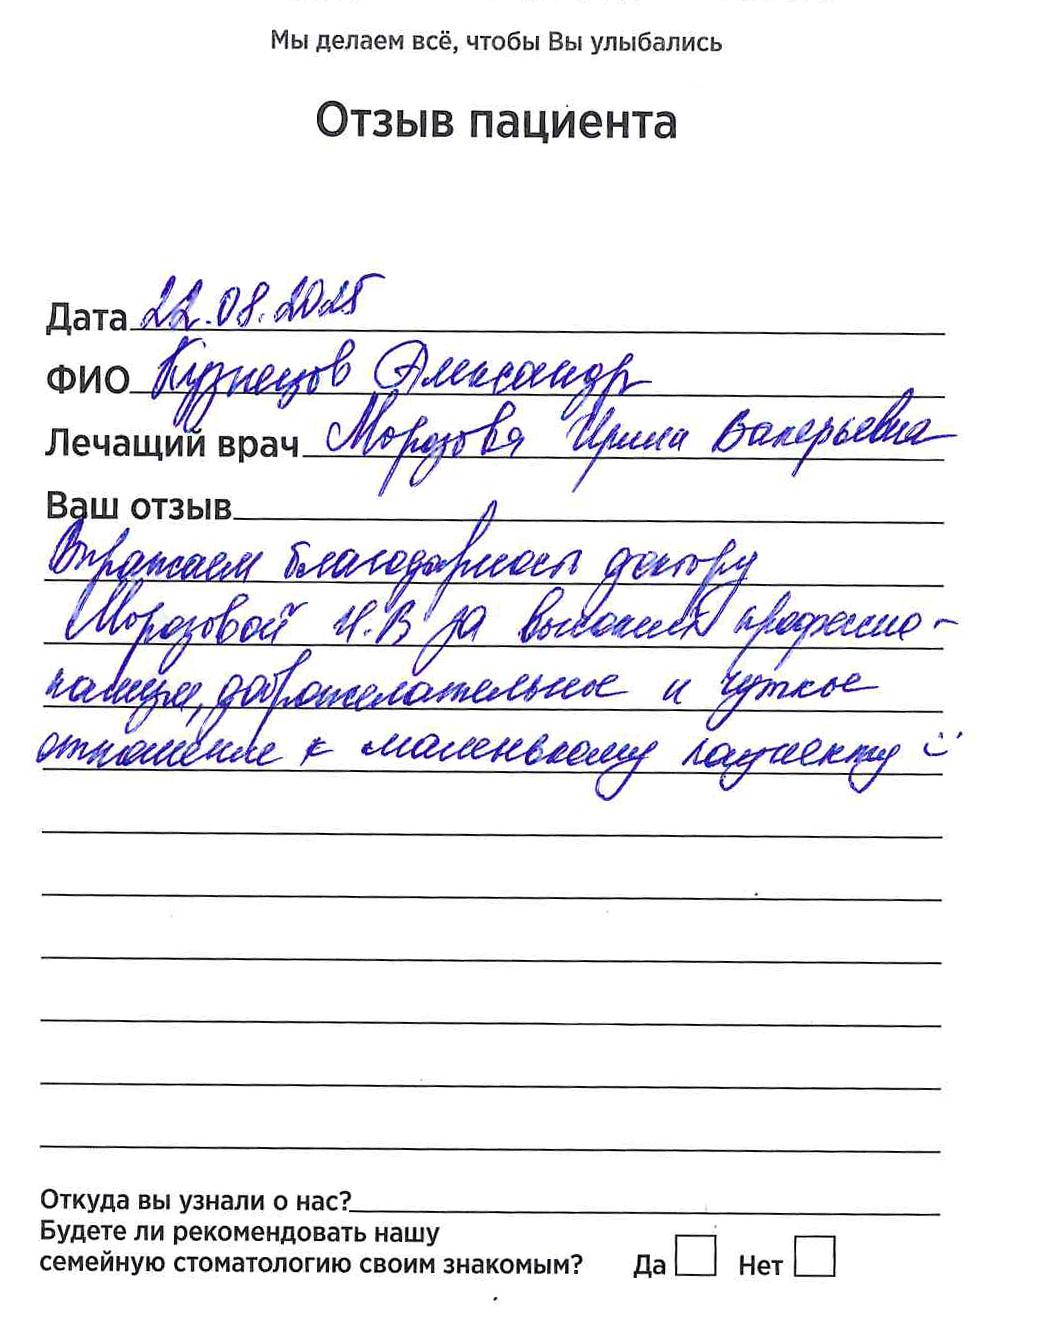 Мы делаем всё, чтобы Вы улыбались
Отзыв пациента
Дата 22.08.2025
ФИО Кузнецов Александр
Лечащий врач Морозова Ирина Валерьевна
Ваш отзыв
Выражаем благодарность доктору
Морозовой И.В за высокий профессио-
нализм, доброжелательное и чуткое
отношение к маленькому пациенту
Откуда вы узнали о нас?
Будете ли рекомендовать нашу
семейную стоматологию своим знакомым? Да Нет